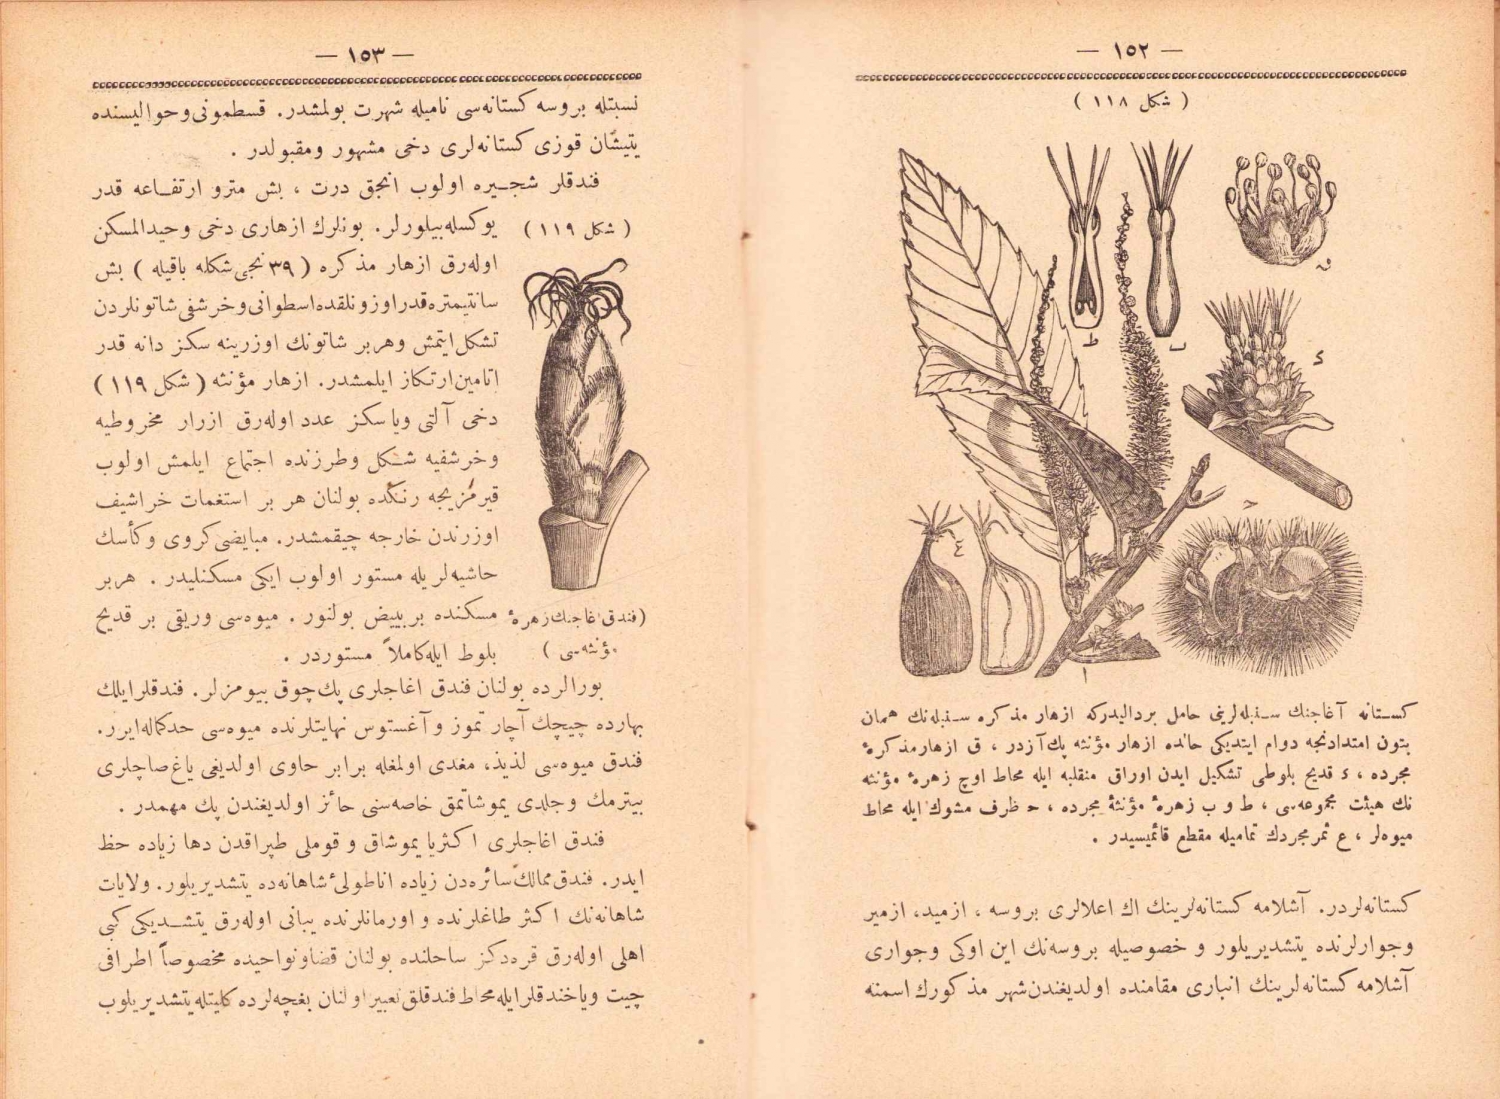 — ١٥٢ —
( شكل ١١٨ )
ق
ط
ب
ء
ح
ع
ا
كستانه آغاجنك سنبله‌لرينى حامل بردالیدركه ازهار مذكره سنبله‌نك همان
بتون امتدادنجه دوام ايتديكى حالده ازهار مؤنثه پك آزدر ، ق ازهار مذكرهٔ
مجرده ، ء قديح بلوطى تشكيل ايدن اوراق منقلبه ايله محاط اوچ زهرهٔ مؤنثه
نك هيئت مجموعه‌سى ، ط و ب زهرهٔ مؤنثهٔ مجرده ، ح ظرف مشوك ايله محاط
ميوه‌لر ، ع ثمر مجردك تماميله مقطع قائميسيدر .
كستانه‌لردر. آشلامه كستانه‌لرينك اك اعلالرى بروسه ، ازميد، ازمير
وجوارلرنده يتشديريلور و خصوصيله بروسه‌نك اين اوكى وجوارى
آشلامه كستانه‌لرينك انبارى مقامنده اولديغندن شهر مذكورك اسمنه
— ١٥٣ —
نسبتله بروسه كستانه‌سى ناميله شهرت بولمشدر. قسطمونى وحواليسنده
يتيشان قوزى كستانه‌لرى دخى مشهور ومقبولدر .
فندقلر شجيره اولوب انجق درت ، بش مترو ارتفاعه قدر
( شكل ١١٩ ) يوكسله‌بيلورلر. بونلرك ازهارى دخى وحيدالمسكن
اوله‌رق ازهار مذكره ( ٣٩ نجى شكله باقيله ) بش
سانتيمتره قدر اوزونلقده اسطوانى وخرشفى شاتونلردن
تشكل ايتمش وهر بر شاتونك اوزرينه سكز دانه قدر
اتامين ارتكاز ايلمشدر. ازهار مؤنثه ( شكل ١١٩ )
دخى آلتى ويا سكز عدد اوله‌رق ازرار مخروطيه
وخرشفيه شكل وطرزنده اجتماع ايلمش اولوب
قيرمزيجه رنكده بولنان هر بر استغمات خراشيف
اوزرندن خارجه چيقمشدر. مبايضى كروى وكأسك
حاشيه‌لريله مستور اولوب ايكى مسكنليدر . هر بر
(فندق اغاجنك زهرهٔ مسكنده بر بييض بولنور . ميوه‌سى وريقى بر قديح
مؤنثه‌سى ) بلوط ايله كاملاً مستوردر .
بورالرده بولنان فندق اغاجلرى پك چوق بيومزلر. فندقلر ايلك
بهارده چيچك آچار تموز و آغستوس نهايتلرنده ميوه‌سى حد كماله ايرر.
فندق ميوه‌سى لذيذ، مغدى اولمغله برابر حاوى اولديغى ياغ صاچلرى
بيترمك وجلدى يموشاتمق خاصه‌سنى حائز اولديغندن پك مهمدر .
فندق اغاجلرى اكثريا يموشاق و قوملى طپراقدن دها زياده حظ
ايدر. فندق ممالك سائره‌دن زياده اناطولىء شاهانه‌ده يتشديريلور. ولايات
شاهانه‌نك اكثر طاغلرنده و اورمانلرنده يبانى اوله‌رق يتشديكى كبى
اهلى اوله‌رق قره‌دكز ساحلنده بولنان قضا ونواحيده مخصوصاً اطرافى
چيت ويا خندقلر ايله محاط فندقلق تعبير اولنان بغچه‌لرده كليتله يتشديريلوب